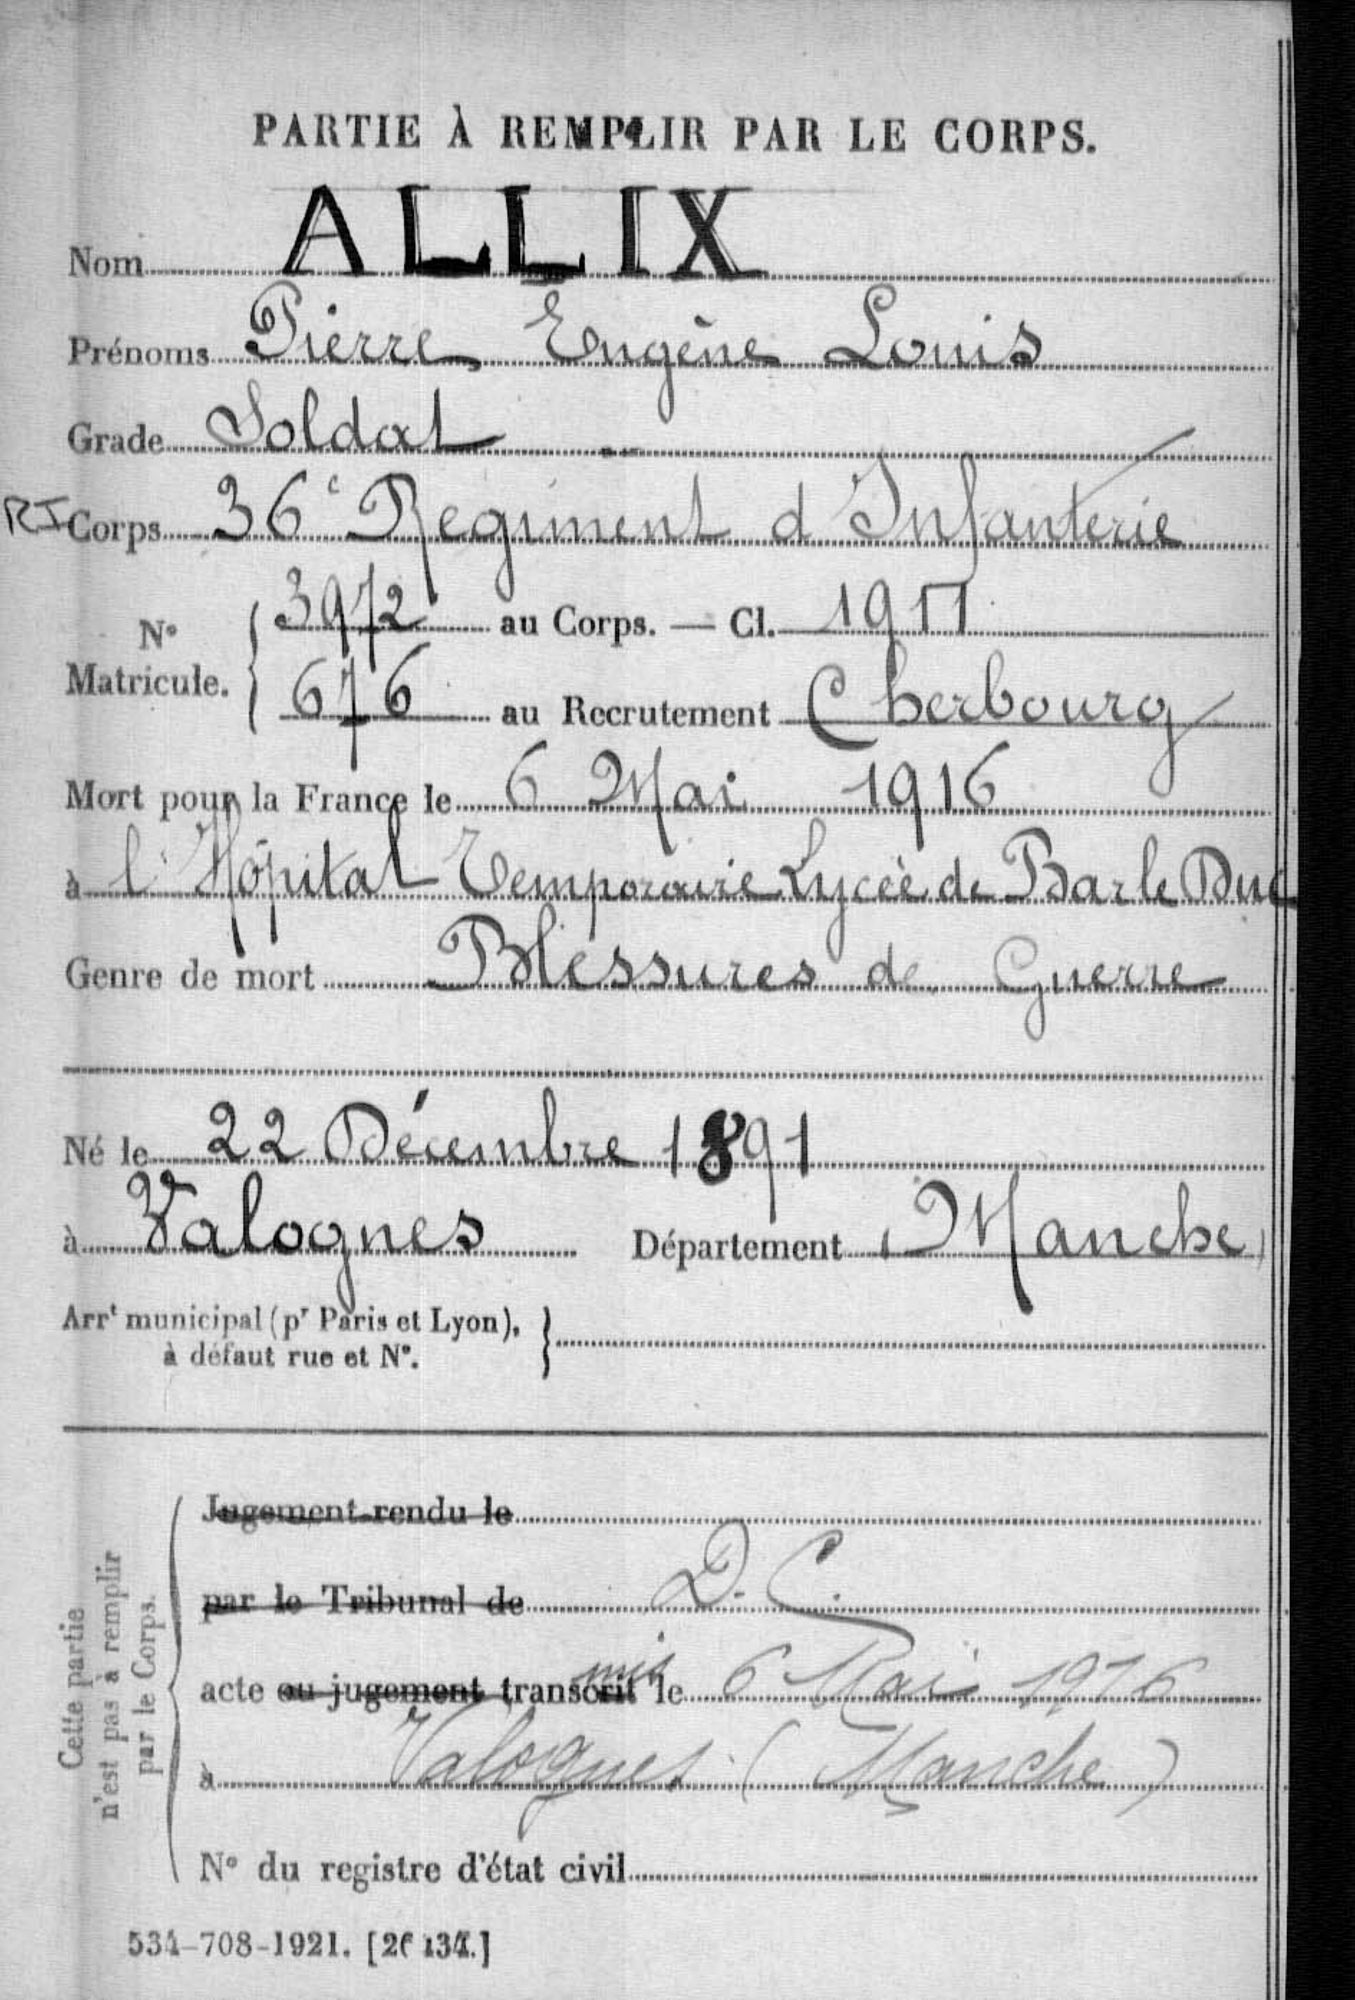 PARTIE À REMPLIR PAR LE CORPS.
Nom ALLIX
Prénoms Pierre Eugène Louis
Grade Soldat
RI Corps 36e Régiment d'Infanterie
N° Matricule. { 3972 au Corps. — Cl. 1911
676 au Recrutement Cherbourg
Mort pour la France le 6 Mai 1916
à l'Hôpital Temporaire Lycée de Bar le Duc
Genre de mort Blessures de Guerre
Né le 22 Décembre 1891
à Valognes Département (Manche)
Arrt municipal (pr Paris et Lyon), }
à défaut rue et N°.
Cette partie
n'est pas à remplir
par le Corps.
Jugement rendu le
par le Tribunal de D.C.
acte ou jugement transcrit mis le 6 Mai 1916
à Valognes (Manche)
N° du registre d'état civil
534-708-1921. [26434.]